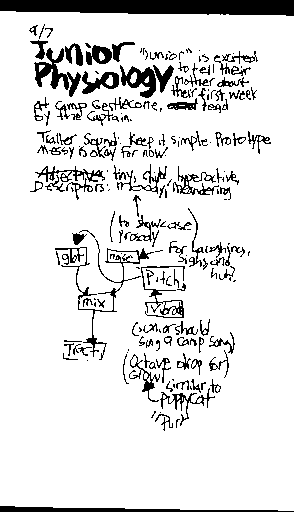 9/7
Junior
Physiology
"Junior" is excited
to tell their
mother about
their first week
at Camp Gestlecone, lead
by the Captain.
Talker Sound: Keep it simple. Prototype
Messy is okay for now.
Adjectives: tiny, hyperactive,
Descriptors: moody, meandering
(to showcase
prosody)
For laughing,
sighs, and
huh?
glot
noise
Pitch
mix
vibrato
Tract
(Junior should
sing a camp song)
(Octave drop for
Growl)
similar to
PuppyCat
"Purr"